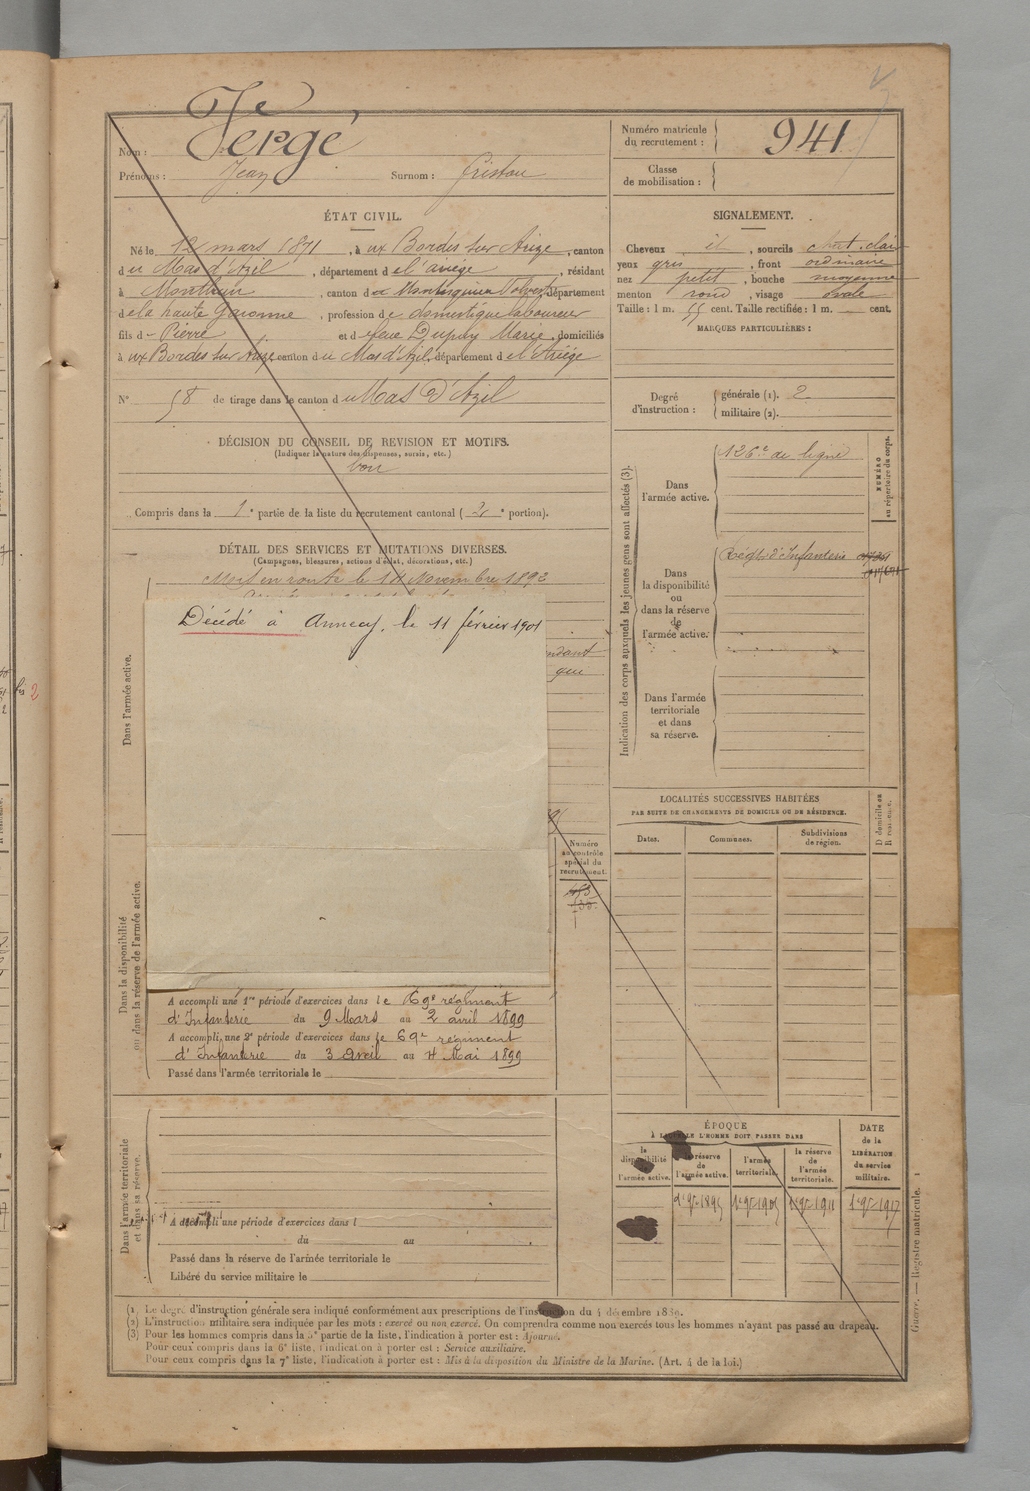 Nom : Jergé
Prénoms : Jean Surnom : Gristou
Numéro matricule du recrutement : 941
Classe de mobilisation :
ÉTAT CIVIL.
Né le 12 mars 1871, à ux Bordes sur Arize, canton
d u Mas d'Azil, département d e l'ariège, résidant
à Montbrun, canton d e Montesquieu Volvestre, département
d e la haute Garonne, profession d e domestique laboureur
fils d e Pierre et d e feue Dupuy Marie, domiciliés
à ux Bordes sur Arize canton d u Mas d'Azil, département d e l'Ariège
N° 58 de tirage dans le canton d u Mas d'Azil
SIGNALEMENT.
Cheveux , sourcils chât. clair
yeux gris , front ordinaire
nez petit , bouche moyenne
menton rond , visage ovale
Taille : 1 m. 55 cent. Taille rectifiée : 1 m. — cent.
MARQUES PARTICULIÈRES :
Degré d'instruction :
générale (1). 2
militaire (2).
DÉCISION DU CONSEIL DE REVISION ET MOTIFS.
(Indiquer la nature des dispenses, sursis, etc.)
bon
Compris dans la 1e partie de la liste du recrutement cantonal (2e portion).
DÉTAIL DES SERVICES ET MUTATIONS DIVERSES.
(Campagnes, blessures, actions d'éclat, décorations, etc.)
Dans l'armée active.
Mis en route le 14 Novembre 1892
Décédé à Annecy, le 11 février 1901
qui
Numéro au contrôle spécial du recrutement.
Dans la disponibilité ou dans la réserve de l'armée active.
A accompli une 1re période d'exercices dans le 69e régiment
d'Infanterie du 9 Mars au 2 avril 1899
A accompli une 2e période d'exercices dans le 69e régiment
d'Infanterie du 3 avril au 4 Mai 1899
Passé dans l'armée territoriale le
Dans l'armée territoriale et dans sa réserve.
A accompli une période d'exercices dans l
du au
Passé dans la réserve de l'armée territoriale le
Libéré du service militaire le
Indication des corps auxquels les jeunes gens sont affectés (3).
NUMÉRO au répertoire du corps.
Dans l'armée active.
126e de ligne
Dans la disponibilité ou dans la réserve de l'armée active.
Régt d'Infanterie
Dans l'armée territoriale et dans sa réserve.
LOCALITÉS SUCCESSIVES HABITÉES
PAR SUITE DE CHANGEMENTS DE DOMICILE OU DE RÉSIDENCE.
Dates. Communes. Subdivisions de région. D domicile ou R résidence.
ÉPOQUE
À LAQUELLE L'HOMME DOIT PASSER DANS
la disponibilité de l'armée active.
la réserve de l'armée active.
l'armée territoriale.
la réserve de l'armée territoriale.
DATE de la LIBÉRATION du service militaire.
1er 9bre 1895 1er 9bre 1905 1er 9bre 1911 1er 9bre 1917
(1) Le degré d'instruction générale sera indiqué conformément aux prescriptions de l'instruction du 4 décembre 1889.
(2) L'instruction militaire sera indiquée par les mots : exercé ou non exercé. On comprendra comme non exercés tous les hommes n'ayant pas passé au drapeau.
(3) Pour les hommes compris dans la 5e partie de la liste, l'indication à porter est : Ajourné.
Pour ceux compris dans la 6e liste, l'indication à porter est : Service auxiliaire.
Pour ceux compris dans la 7e liste, l'indication à porter est : Mis à la disposition du Ministre de la Marine. (Art. 4 de la loi.)
Guerre. — Registre matricule. 1